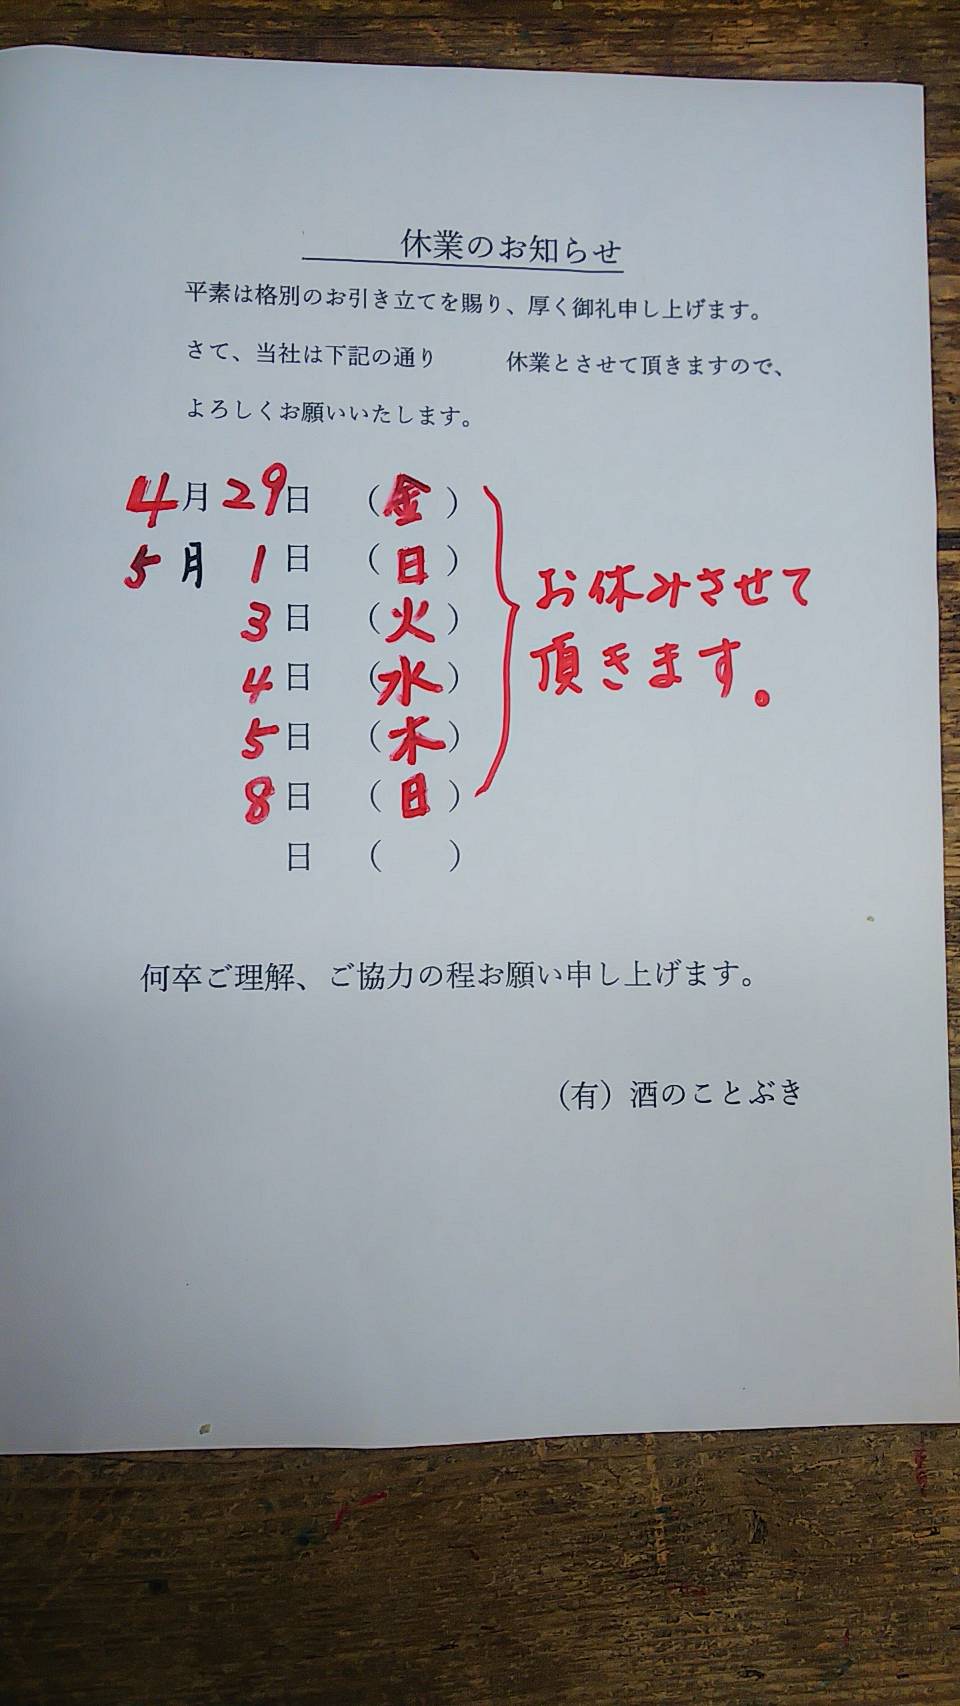 休業のお知らせ
平素は格別のお引き立てを賜り、厚く御礼申し上げます。
さて、当社は下記の通り　　　休業とさせて頂きますので、
よろしくお願いいたします。
4月29日　（金）
5月　1日　（日）
3日　（火）
4日　（水）
5日　（木）
8日　（日）
日　（　　）
お休みさせて
頂きます。
何卒ご理解、ご協力の程お願い申し上げます。
（有）酒のことぶき